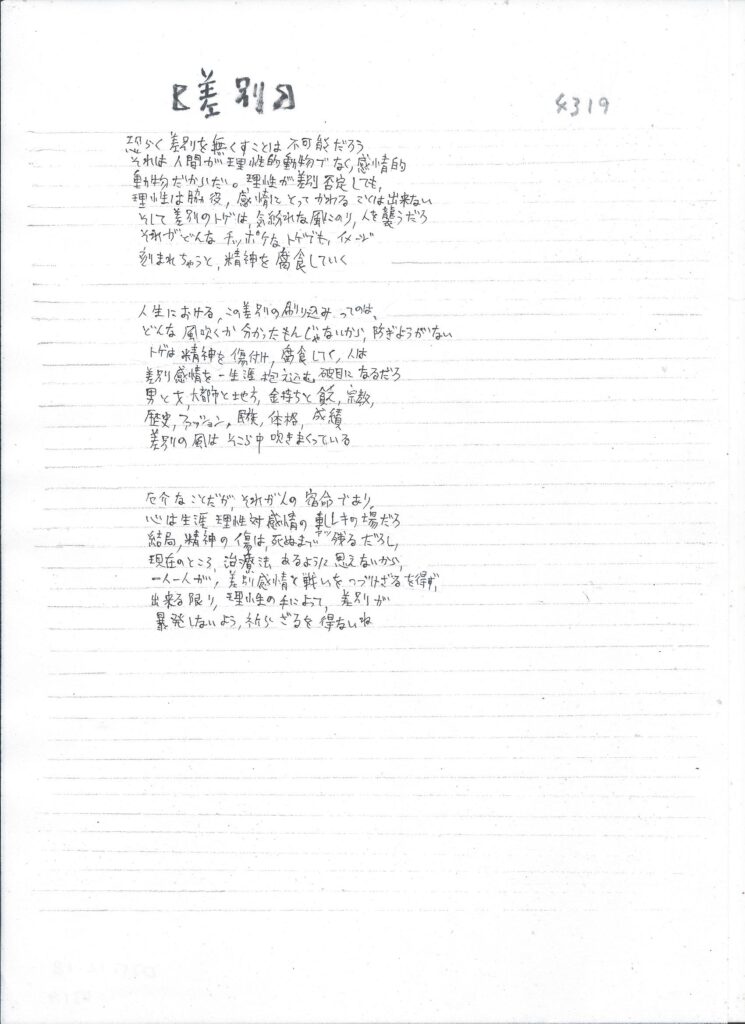 【差別】
4319
恐らく差別を無くすことは不可能だろう
それは人間が理性的動物でなく、感情的
動物だからだ。理性が差別否定しても、
理性は脇役、感情にとってかわることは出来ない
そして差別のトゲは、気紛れな風にのり、人を襲うだろ
それがどんなチッポケなトゲでも、イメージ
刻まれちゃうと、精神を腐食していく
人生における、この差別の刷り込みってのは、
どんな風吹くか分かったもんじゃないから、防ぎようがない
トゲは精神を傷付け、腐食してく、人は
差別感情を一生涯抱え込む破目になるだろ
男と女、大都市と地方、金持ちと貧乏、宗教、
歴史、ファッション、民族、体格、成績
差別の風はそこら中吹きまくっている
厄介なことだが、それが人の宿命であり、
心は生涯理性対感情の軋しキの場だろ
結局、精神の傷は、死ぬまで残るだろし、
現在のところ、治療法あるように思えないから、
一人一人が、差別感情と戦いをつづけざるを得ず、
出来る限り、理性の手によって、差別が
暴発しないよう、祈らざるを得ないね